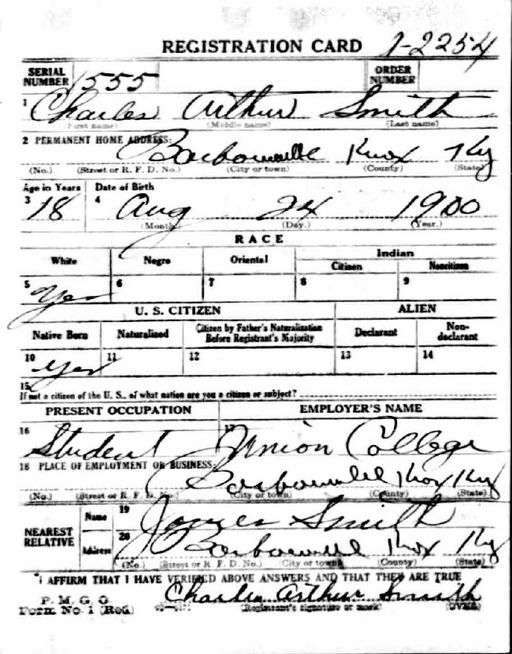 REGISTRATION CARD 1-2254
SERIAL NUMBER 1555 ORDER NUMBER
1 Charles Arthur Smith
(First name) (Middle name) (Last name)
2 PERMANENT HOME ADDRESS:
Barbourville Knox Ky
(No.) (Street or R. F. D. No.) (City or town) (County) (State)
Age in Years Date of Birth
3 18 4 Aug 24 1900
(Month) (Day.) (Year.)
RACE
White Negro Oriental Indian
Citizen Noncitizen
5 Yes 6 7 8 9
U. S. CITIZEN ALIEN
Native Born Naturalized Citizen by Father's Naturalization Before Registrant's Majority Declarant Non-declarant
10 Yes 11 12 13 14
15
If not a citizen of the U. S., of what nation are you a citizen or subject?
PRESENT OCCUPATION EMPLOYER'S NAME
16 Student Union College
18 PLACE OF EMPLOYMENT OR BUSINESS:
Barbourville Knox Ky
(No.) (Street or R. F. D. No.) (City or town) (County) (State)
NEAREST RELATIVE
Name 19 James Smith
Address 20 Barbourville Knox Ky
(No.) (Street or R. F. D. No.) (City or town) (County) (State)
I AFFIRM THAT I HAVE VERIFIED ABOVE ANSWERS AND THAT THEY ARE TRUE
P. M. G. O.
Form No. 1 (Red) Charles Arthur Smith
(Registrant's signature or mark) (OVER)